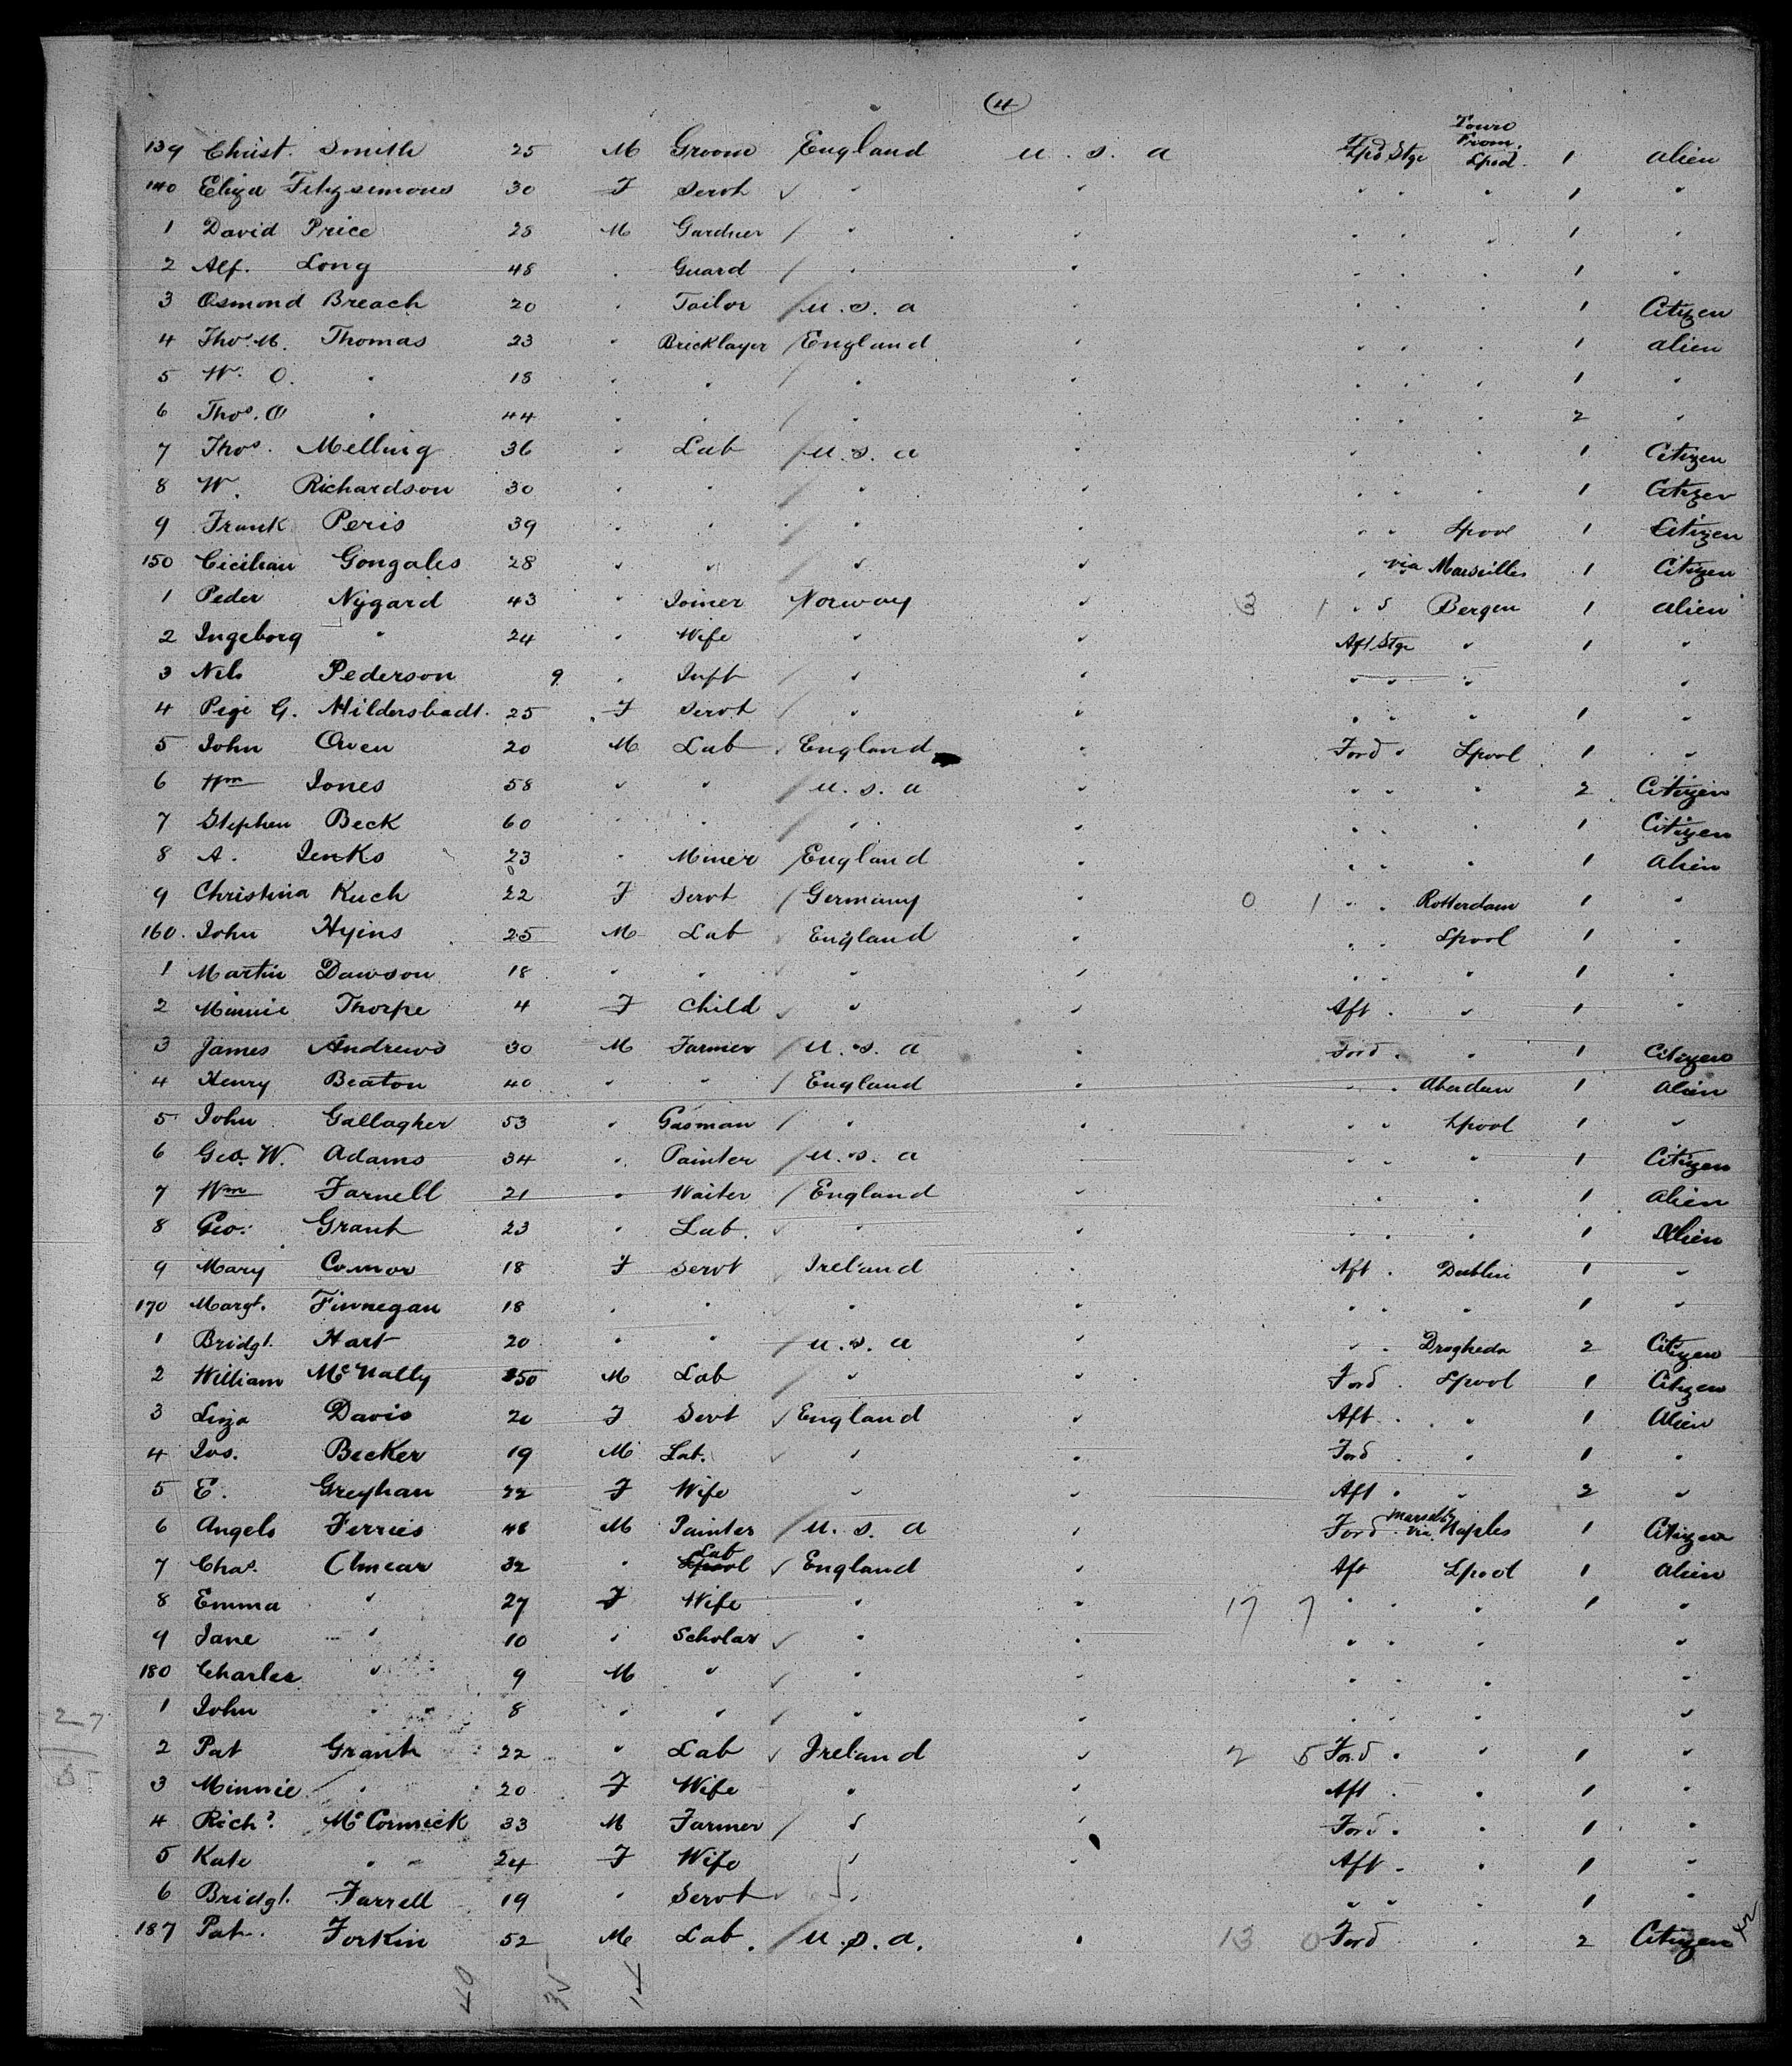 (4)
Town
From
139 Christ. Smith 25 M Groom England U.S.a Ford Stge Lpool 1 alien
140 Eliza Fitzsimons 30 F Servt " " " " " 1 "
1 David Price 28 M Gardner " " " " " 1 "
2 Alf. Long 48 " Guard " " " " " 1 "
3 Osmond Breach 20 " Tailor U.S.a " " " " 1 Citizen
4 Tho. M. Thomas 23 " Bricklayer England " " " " 1 alien
5 W. O. " 18 " " " " " " " 1 "
6 Thos. O " 44 " " " " " " " 2 "
7 Thos. Melling 36 " Lab U.S.a " " " 1 Citizen
8 W. Richardson 30 " " " " " " " 1 Citizen
9 Frank Peris 39 " " " " " " Lpool 1 Citizen
150 Cicilian Gongales 28 " " " " " via Marseilles 1 Citizen
1 Peder Nygard 43 " Joiner Norway " 3 1 " S Bergen 1 alien
2 Ingeborg " 24 " Wife " " Aft Stge " 1 "
3 Nils Pederson 9 " Inft " " " " " "
4 Pige G. Hildersbadt. 25 F Servt " " " " " 1 "
5 John Owen 20 M Lab England " Ford " Lpool 1 "
6 Wm Jones 58 " " U.S.a " " " " 2 Citizen
7 Stephen Beck 60 " " " " " " " 1 Citizen
8 A. Jenks 23 " Miner England " " " " 1 alien
9 Christina Kuch 22 F Servt Germany " 0 1 " " Rotterdam 1 "
160. John Hyins 25 M Lab England " " " Lpool 1 "
1 Martin Dawson 18 " " " " " " " 1 "
2 Minnie Thorpe 4 F Child " " Aft " " 1 "
3 James Andrews 30 M Farmer U.S.a " Ford " " 1 Citizen
4 Henry Beaton 40 " " England " " Aberdeen 1 alien
5 John Gallagher 53 " Gasman " " " " Lpool 1 "
6 Geo. W. Adams 34 " Painter U.S.a " " " " 1 Citizen
7 Wm Farnell 21 " Waiter England " " " " 1 alien
8 Geo. Grant 23 " Lab. " " " " " 1 Alien
9 Mary Connor 18 F Servt Ireland " Aft " Dublin 1 "
170 Margt. Finnegan 18 " " " " " " " 1 "
1 Bridgt. Hart 20 " " U.S.a " " " Drogheda 2 Citizen
2 William McNally 50 M Lab " " Ford " Lpool 1 Citizen
3 Liza Davis 20 F Servt England " Aft " " 1 Alien
4 Jos. Becker 19 M Lab. " " Ford " " 1 "
5 E. Greyhan 22 F Wife " " Aft " " 2 "
6 Angelo Ferries 48 M Painter U.S.a " Ford Marseilles via Naples 1 Citizen
7 Chas. Clmear 32 " Lab England " Aft Lpool 1 alien
8 Emma " 27 F Wife " " 17 7 " " " 1 "
9 Jane " 10 " Scholar " " " " " "
180 Charles " 9 M " " " " " " "
1 John " 8 " " " " " " " "
2 Pat Grant 22 " Lab Ireland " 2 5 Ford " " 1 "
3 Minnie " 20 F Wife " " Aft " " 1 "
4 Richd. McCormick 33 M Farmer " " Ford " " 1 "
5 Kate " 24 F Wife " " Aft " " 1 "
6 Bridgt. Farrell 19 " Servt " " " " 1 "
187 Pat. Forkin 52 M Lab. U.S.a. " 13 0 Ford " 2 Citizen
40 35 14